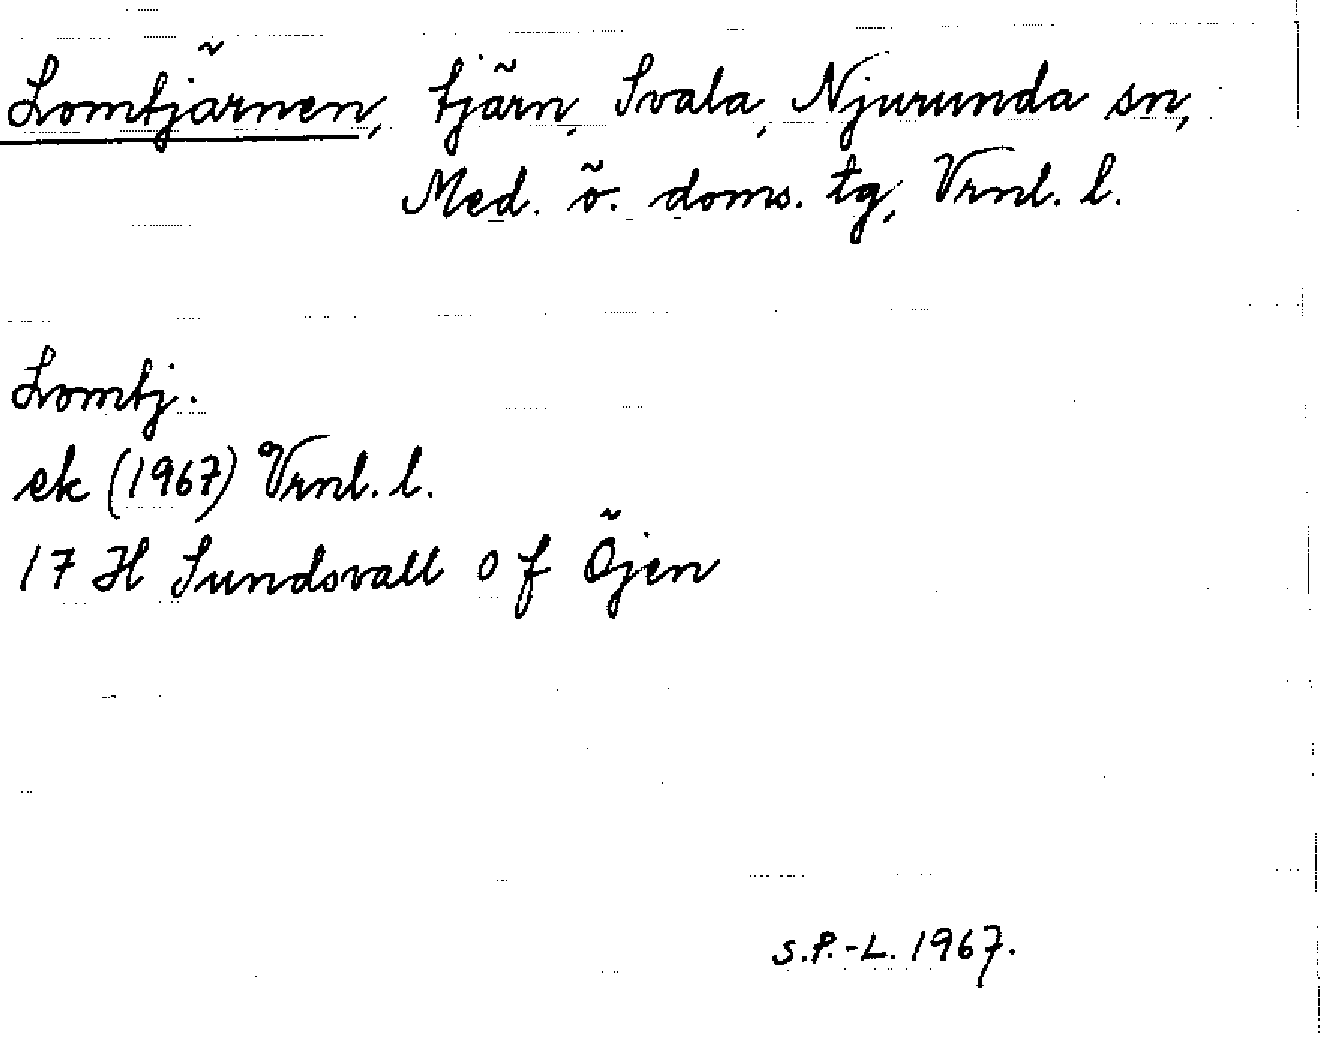 Lomtjärnen, tjärn, Svala, Njurunda sn,
Med. ö. doms. tg, Vrnl. l.
Lomtj.
ek (1967) Vrnl. l.
17 H Sundsvall o f Öjen
S.P.-L. 1967.